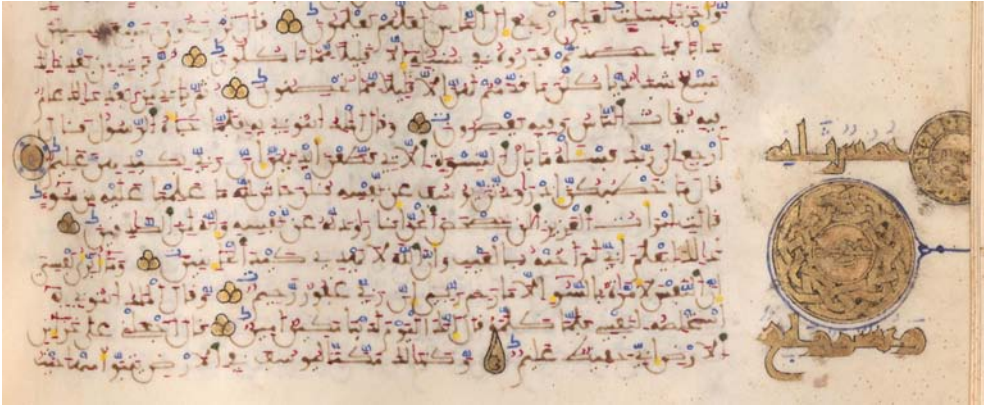 وأخر يابسات لعلي أرجع إلى الناس لعلهم يعلمون قال تزرعون سبع سنين
دأبا فما حصدتم فذروه في سنبله إلا قليلا مما تأكلون ثم ياتي من بعد ذلك
سبع شداد ياكلن ما قدمتم لهن إلا قليلا مما تحصنون ثم ياتي من بعد ذلك عام
فيه يغاث الناس وفيه يعصرون وقال الملك ائتوني به فلما جاءه الرسول قال
ارجع إلى ربك فسئله ما بال النسوة التي قطعن أيديهن إن ربي بكيدهن عليم
قال ما خطبكن إذ راودتن يوسف عن نفسه قلن حاش لله ما علمنا عليه من سوء
قالت امرأت العزيز الن حصحص الحق أنا راودته عن نفسه وإنه لمن الصدقين
ذلك ليعلم أني لم أخنه بالغيب وأن الله لا يهدي كيد الخائنين وما أبرئ نفسي
إن النفس لأمارة بالسوء إلا ما رحم ربي إن ربي غفور رحيم وقال الملك ائتوني به
أستخلصه لنفسي فلما كلمه قال إنك اليوم لدينا مكين أمين قال اجعلني على خزائن
الأرض إني حفيظ عليم وكذلك مكنا ليوسف في الأرض يتبوأ منها حيث